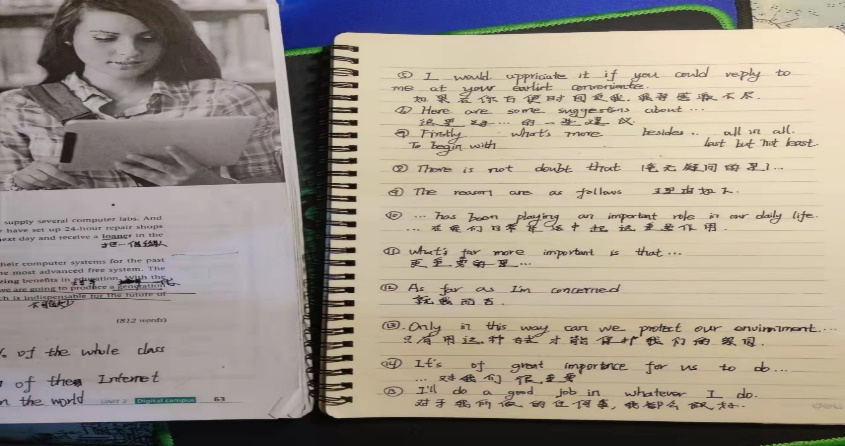 supply several computer labs. And
have set up 24-hour repair shops
next day and receive a loaner in the
their computer systems for the past
the most advanced free system. The
benefits in education. With the
we are going to produce a generation
ch is indispensable for the future of
(812 words)
% of the whole class
of the Internet
n the world
UNIT 3 Digital campus 63
I would uppriciate it if you could reply to
me at your earlirt convenimate.
如果在你方便时回复我,我将感激不尽.
Here are some suggestions about...
这里是...的一些建议
Firstly what's more besides.. all in all.
To begin with last but not least.
There is not doubt that (毫无疑问的是)...
The reason are as follows 理由如下.
⑩ ... has been playing an important role in our daily life.
... 在我们日常生活中起着重要作用.
⑪ what's far more important is that...
更重要的是...
⑫ As far as I'm concerned
就我而言.
⑬. Only in this way can we protect our envinment...
只有用这种方式才能保护我们的家园.
⑭ It's of great importance for us to do...
... 对我们很重要
⑮ I'll do a good job in whatever I do.
对于我所做的任何事,我都会做好.